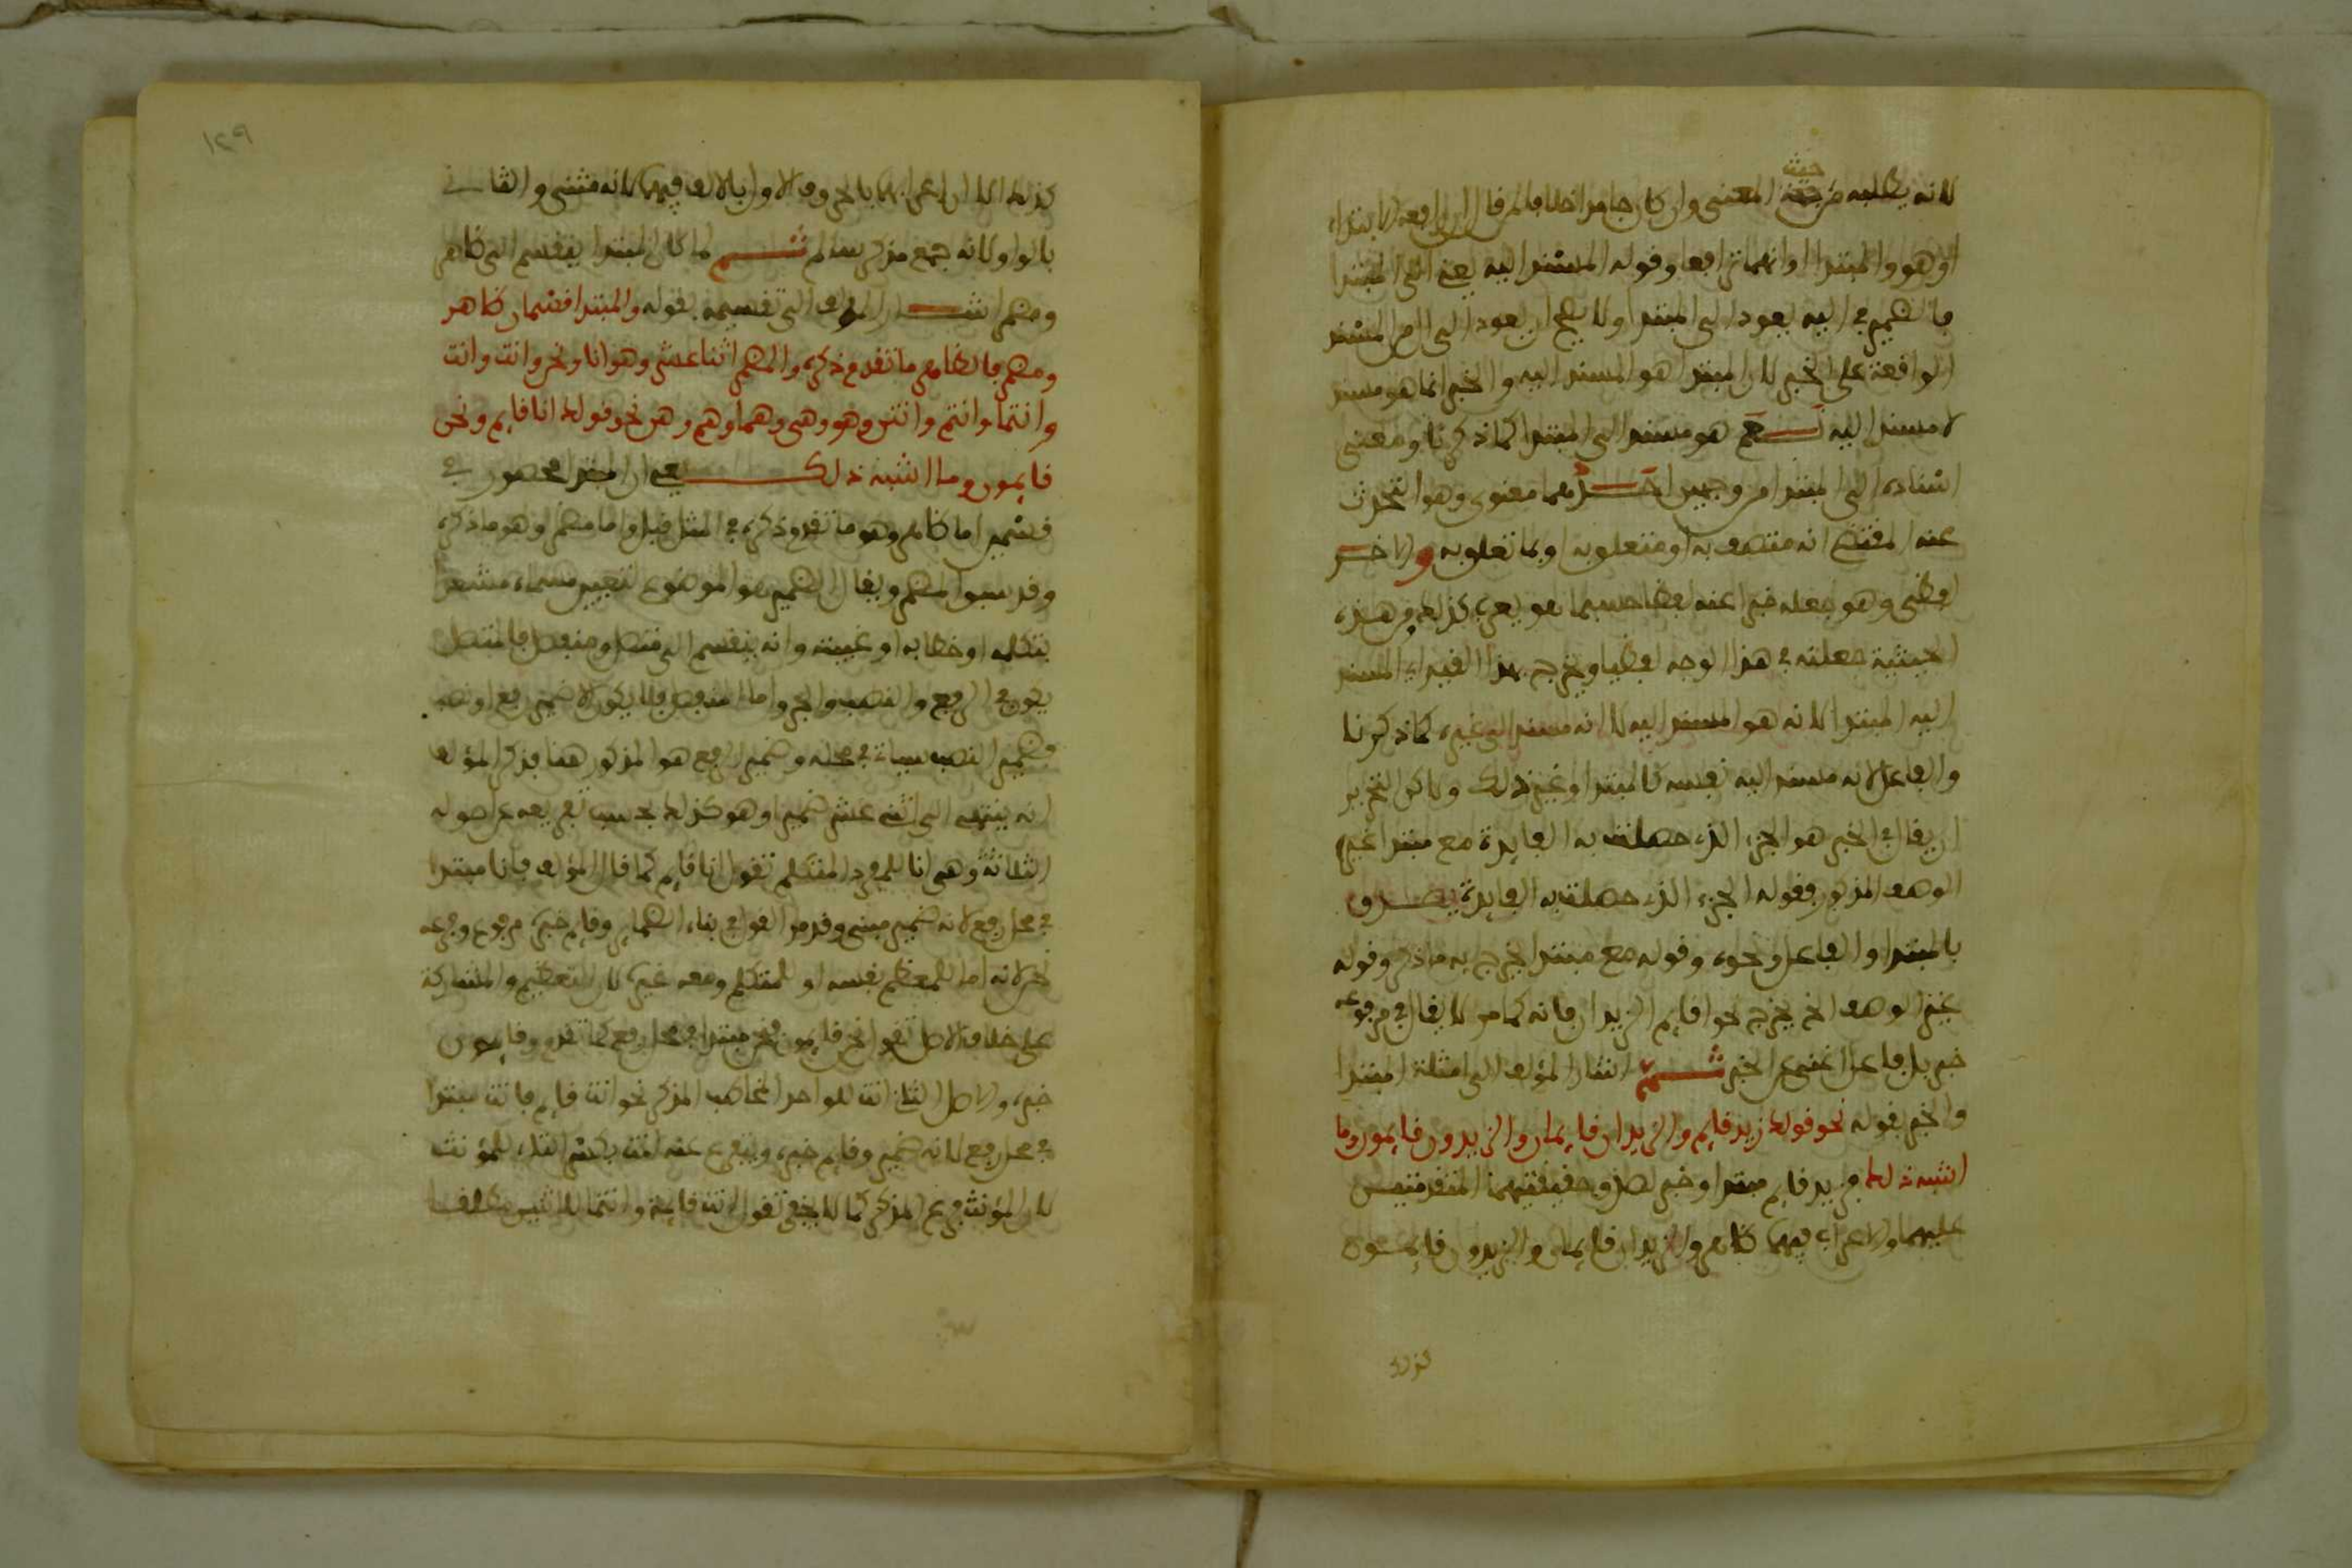 لانه يطلبه من حيث المعنى وان كان جامدا خلافا لمن قال ان رافعه الابتداء
او هو والمبتدا او انهما ترافعا وقوله المسند اليه يعني الى المبتدا
فالضمير في اليه يعود الى المبتدا ولا يصح ان يعود الى ال من المسند
الواقعة على الخبر لان المبتدا هو المسند اليه والخبر انما هو مسند
لا مسند اليه نعم هو مسند الى المبتدا كما ذكرنا ومعنى
اسناده الى المبتدا من وجهين احدهما معنوي وهو التحدث
عنه المقتضي انه متصف به او متعلق به او بما تعلق به والاخر
لفظي وهو جعله خبرا عنه لفظا حسبما هو يعرب كذلك من هذه
الحيثية جعلته في هذا الوجه لفظيا ويخرج بهذا القيد اي المسند
اليه المبتدا لانه هو المسند اليه لا انه مسند الى غيره كما ذكرنا
والفاعل لانه مسند اليه نفسه كالمبتدا وغير ذلك ولاكن التحرير
ان يقال في الخبر هو الجزء الذي حصلت به الفايدة مع مبتدا غير
الوصف المذكور فقوله الجزء الذي حصلت به الفايدة يصدق
بالمبتدا والفاعل ونحوه وقوله مع مبتدا يخرج به ما ذكر وقوله
غير الوصف الخ يخرج نحو اقايم الزيدان فانه كما مر لا يقال في مرفوعه
خبر بل فاعل اغنى عن الخبر ثم اشار المؤلف الى امثلة المبتدا
والخبر بقوله نحو قولك زيد قايم والزيدان قايمان والزيدون قايمون وما
اشبه ذلك فزيد قايم مبتدا وخبر لصدق حقيقتيهما المتقدمتين
عليهما والاعراب فيهما ظاهر والزيدان قايمان والزيدون قايمون
كذلك
١٢٩
كذلك الا ان اعرابهما بالحروف الاول بالالف فيهما لانه مثنى والثاني
بالواو لانه جمع مذكر سالم ثم لما كان المبتدا ينقسم الى ظاهر
ومضمر اشار المؤلف الى تقسيمه بقوله والمبتدا قسمان ظاهر
ومضمر فالظاهر ما تقدم ذكره والمضمر اثنا عشر وهو انا ونحن وانت وانت
وانتما وانتم وانتن وهو وهي وهما وهم وهن نحو قولك انا قايم ونحن
قايمون وما اشبه ذلك يعني ان المبتدا محصور في
قسمين اما ظاهر وهو ما تقدم ذكره في المثل قبل واما مضمر وهو ما ذكره
وقد سبق المضمر ويقال الضمير هو الموضوع لتعيين مسماه مشعرا
بتكلمه او خطابه او غيبته وانه ينقسم الى متصل ومنفصل فالمتصل
يكون في الرفع والنصب والجر واما المنفصل فلا يكون الا ضمير رفع او نصب
فضمير النصب سياتي في محله وضمير الرفع هو المذكور هنا فذكر المؤلف
انه ينتهي الى اثني عشر ضميرا وهو كذلك بحسب تفريعه عن اصوله
الثلاثة وهي انا للمفرد المتكلم تقول انا قايم كما قال المؤلف فانا مبتدا
في محل رفع لانه ضمير مبني وقد مر القول في بناء الضماير وقايم خبره مرفوع وفرعه
نحن لانه اما للمعظم نفسه او للمتكلم ومعه غيره لان التعظيم والمشاركة
على خلاف الاصل تقول نحن قايمون فنحن مبتدا في محل رفع كما تقدم وقايمون
خبره والاصل الثاني انت للواحد المخاطب المذكر نحو انت قايم فانت مبتدا
في محل رفع لانه ضمير وقايم خبره ويتفرع عنه انت بكسر التاء للمؤنث
لان المؤنث فرع المذكر كما لا يخفى تقول انت قايمة وانتما للاثنين مطلقا